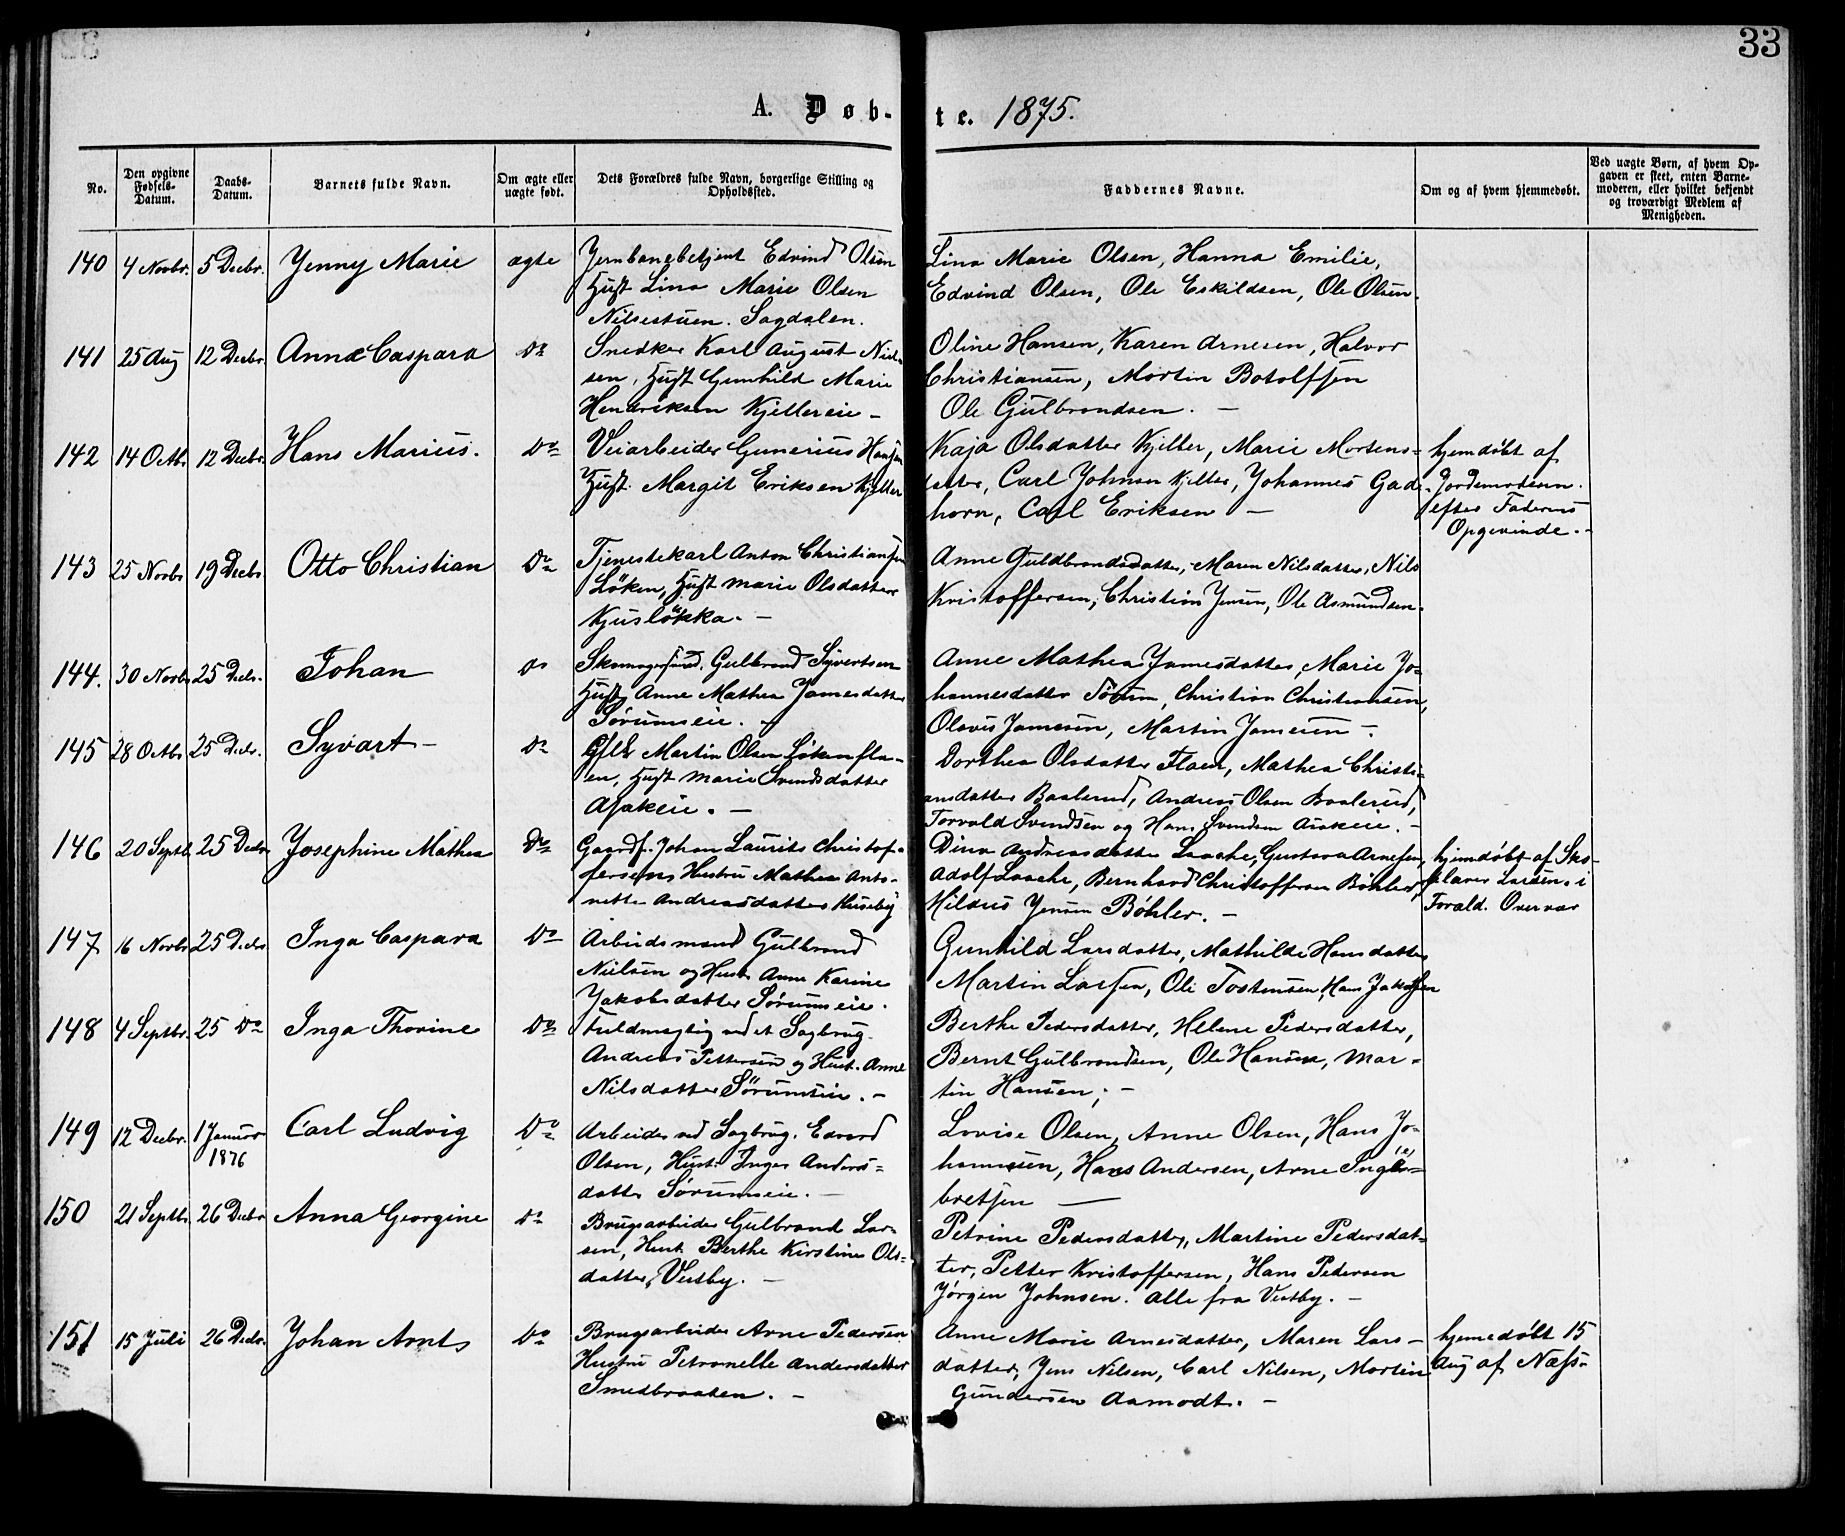 33
A. Døb-
te. 1875.
No.
Den opgivne Fødsels-Datum.
Daabs-Datum.
Barnets fulde Navn.
Om ægte eller uægte født.
Dets Forældres fulde Navn, borgerlige Stilling og Opholdssted.
Faddernes Navne.
Om og af hvem hjemmedøbt.
Ved uægte Børn, af hvem Opgaven er skeet, enten Barnemoderen, eller hvilket bekjendt og troværdigt Medlem af Menigheden.
140 4 Novbr. 5 Decbr. Jenny Marie ægte
Jernbanebetjent Edvind Olsen
Hust Lina Marie Olsen
Nilsestuen. Sagdalen.
Lina Marie Olsen, Hanna Emilie,
Edvind Olsen, Ole Eskildsen, Ole Olsen.
141 25 Aug 12 Decbr Anna Caspara Do
Snedker Karl August Niel-
sen, Hust Gunhild Marie
Hendriksen Kjellereie -
Oline Hansen, Karen Arnesen, Halvor
Christiansen, Mortin Botolfsen
Ole Gulbrandsen. -
142 14 Octbr 12 Decbr. Hans Marius. Do
Veiarbeider Gunerius Hansen
Hust. Margit Eriksen Kjeller
Kaja Olsdatter Kjeller, Marie Mortens-
datter, Carl Johnsen Kjeller, Johannes Gad-
horn, Carl Eriksen -
hjemdøbt af
Jordemoderen
efter Faderens
Opgivende. -
143 25 Novbr 19 Decbr Otto Christian Do
Tjenestekarl Anton Christiansen
Löken, Hust Marie Olsdatter
Kjuslökka. -
Anne Guldbrandsdatter, Maren Nilsdatter, Nils
Kristoffersen, Christian Jensen, Ole Asmundsen.
144. 30 Novbr 25 Decbr. Johan do
Skomagersvend. Gulbrand Syvertsen
Hust Anne Mathea Jamesdatter
Sörumseie. -
Anne Mathea Jamesdatter, Marie Jo-
hannesdatter Sörum, Christian Christiansen,
Olavus Jamesen, Martin Jamesen -
145 28 Octbr 25 Decbr. Syvart - Do
Martin Olsen Lökenfla-
en, Hust Marie Svendsdatter
Asakeie. -
Dorthea Olsdatter Flaen, Mathea Christi-
ansdatter Baalerud, Andreas Olsen Baalerud,
Torvald Svendsen og Hans Svendsen Asakeie. -
146 20 Septb. 25 Decbr Josephine Mathea Do
Gaardf. Johan Laurits Christof-
fersen, Hustru Mathea Anto-
nette Andreasdatter Huseby
Dina Andreasdatter Laache, Gustava Arnesen,
Adolf Laache, Bernhard Christoffersen Böhler,
Hilaus Jensen Böhler. -
hjemdøbt af Sko-
Larsen. i
Foræld. Overvær
147 16 Novbr 25 Decbr. Inga Caspara Do
Arbeidsmand Gulbrand
Nielsen og Hust. Anne Karine
Jakobsdatter Sörumseie.
Gunhild Larsdatter, Mathilde Hansdatter
Martin Larsen, Ole Tostensen, Hans Jakobsen
148 4 Septbr. 25 Do Inga Thorine Do
Fuldmægtig ved et Sagbrug.
Andreas Pettersen og Hust. Anne
Nilsdatter Sörumseie. -
Berthe Pedersdatter, Helene Pedersdatter,
Bernt Gulbrandsen, Ole Hansen, Mar-
tin Hansen, -
149 12 Decbr. 1 Januar 1876 Carl Ludvig Do
Arbeider ved Sagbrug. Edvard
Olsen, Hust. Inger Anders-
datter Sörumseie. -
Lovise Olsen, Anne Olsen, Hans Jo-
hannesen, Hans Andersen, Arne Inge-
bretsen -
150 21 Septbr. 26 Decbr Anna Georgine Do
Brugsarbeider Gulbrand Lar-
sen, Hust. Berthe Kirstine Ols-
datter, Vestby. -
Petrine Pedersdatter, Martine Pedersdat-
ter, Petter Kristoffersen, Hans Pedersen
Jörgen Johnsen. Alle fra Vestby. -
151 15 Juli 26 Decbr. Johan Arnt Do
Brugsarbeider Arne Pedersen
Hustru Petronelle Andersdatter
Smedbraaten. -
Anne Marie Arnesdatter, Maren Lars-
datter, Jens Nilsen, Carl Nilsen, Mortin
Gundersen Aamodt. -
hjemedøbt 15
Aug af Næss-